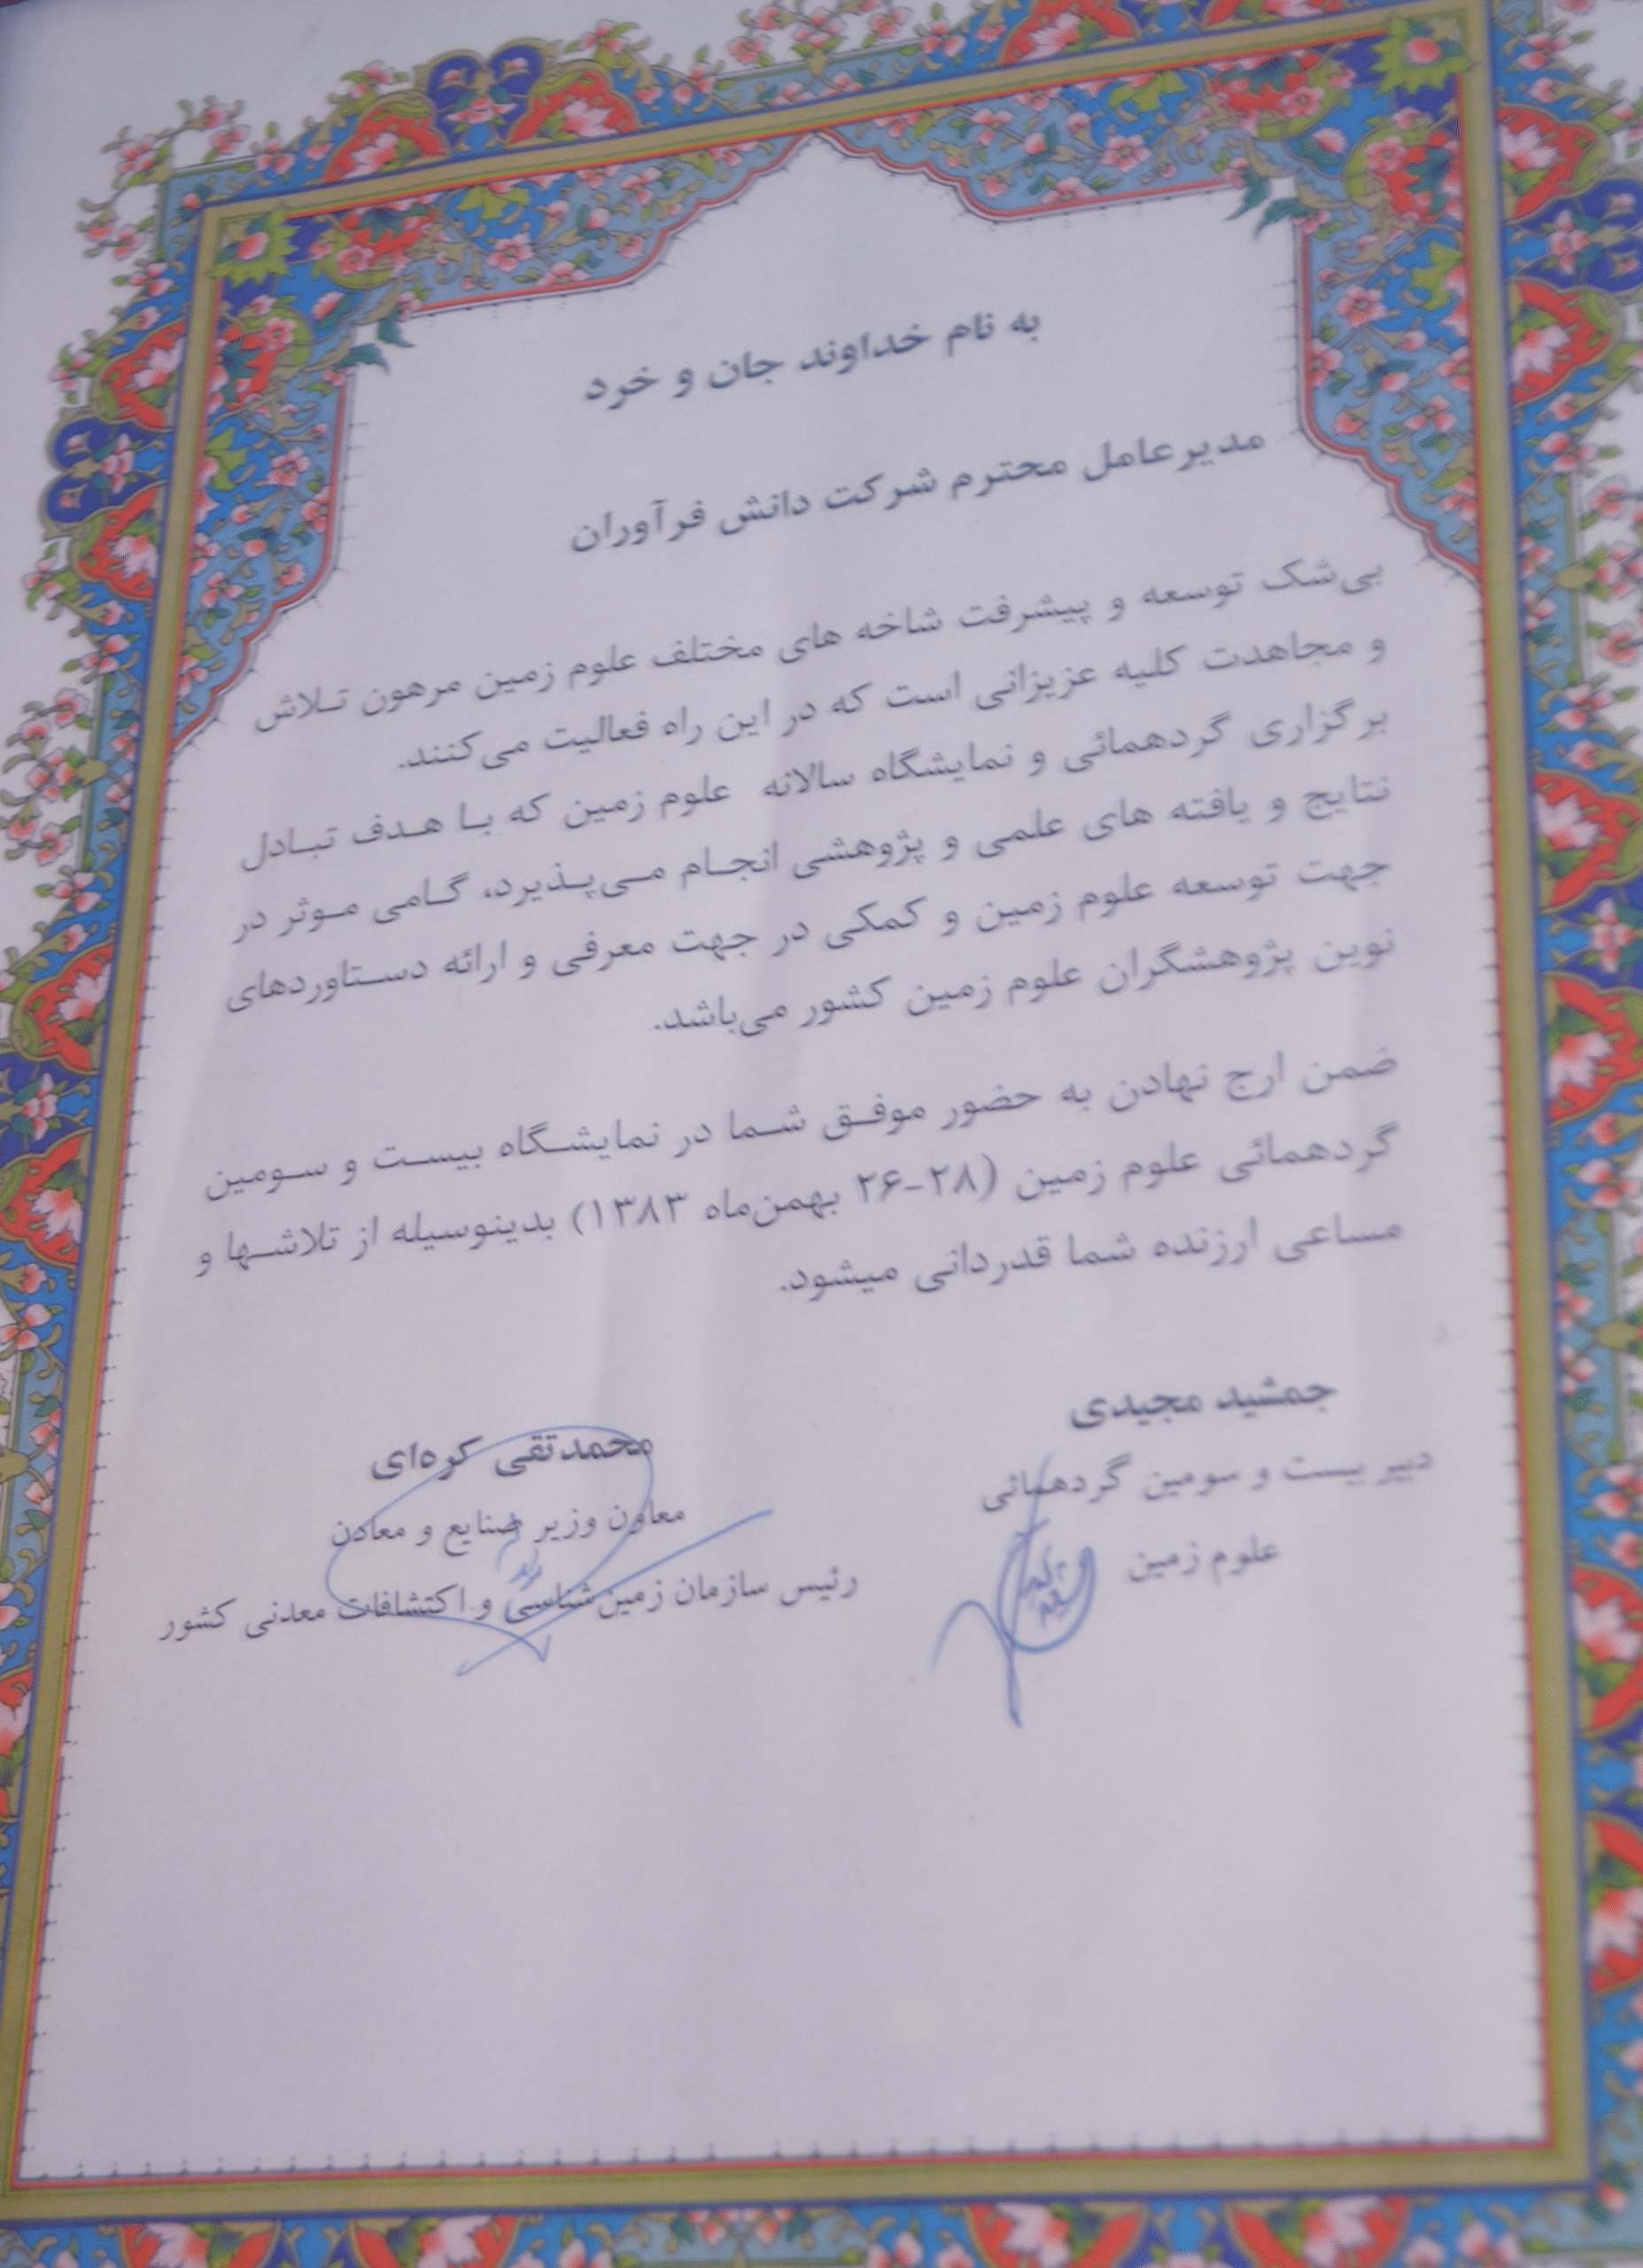 به نام خداوند جان و خرد
مدیرعامل محترم شرکت دانش فرآوران
بی‌شک توسعه و پیشرفت شاخه های مختلف علوم زمین مرهون تلاش
و مجاهدت کلیه عزیزانی است که در این راه فعالیت می‌کنند.
برگزاری گردهمائی و نمایشگاه سالانه علوم زمین که با هدف تبادل
نتایج و یافته های علمی و پژوهشی انجام می‌پذیرد، گامی موثر در
جهت توسعه علوم زمین و کمکی در جهت معرفی و ارائه دستاوردهای
نوین پژوهشگران علوم زمین کشور می‌باشد.
ضمن ارج نهادن به حضور موفق شما در نمایشگاه بیست و سومین
گردهمائی علوم زمین (۲۸-۲۶ بهمن‌ماه ۱۳۸۳) بدینوسیله از تلاشها و
مساعی ارزنده شما قدردانی میشود.
جمشید مجیدی
دبیر بیست و سومین گردهمائی
علوم زمین
محمدتقی کره‌ای
معاون وزیر صنایع و معادن
رئیس سازمان زمین‌شناسی و اکتشافات معدنی کشور